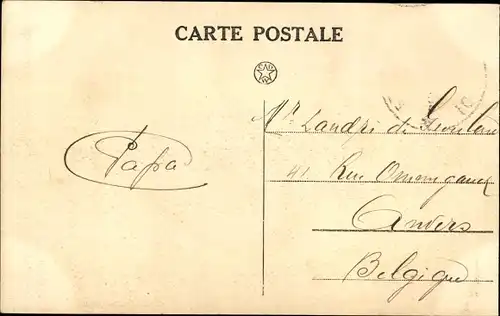 CARTE POSTALE
Mr Landri de
41 Rue Ommeganck
Anvers
Belgique
Papa